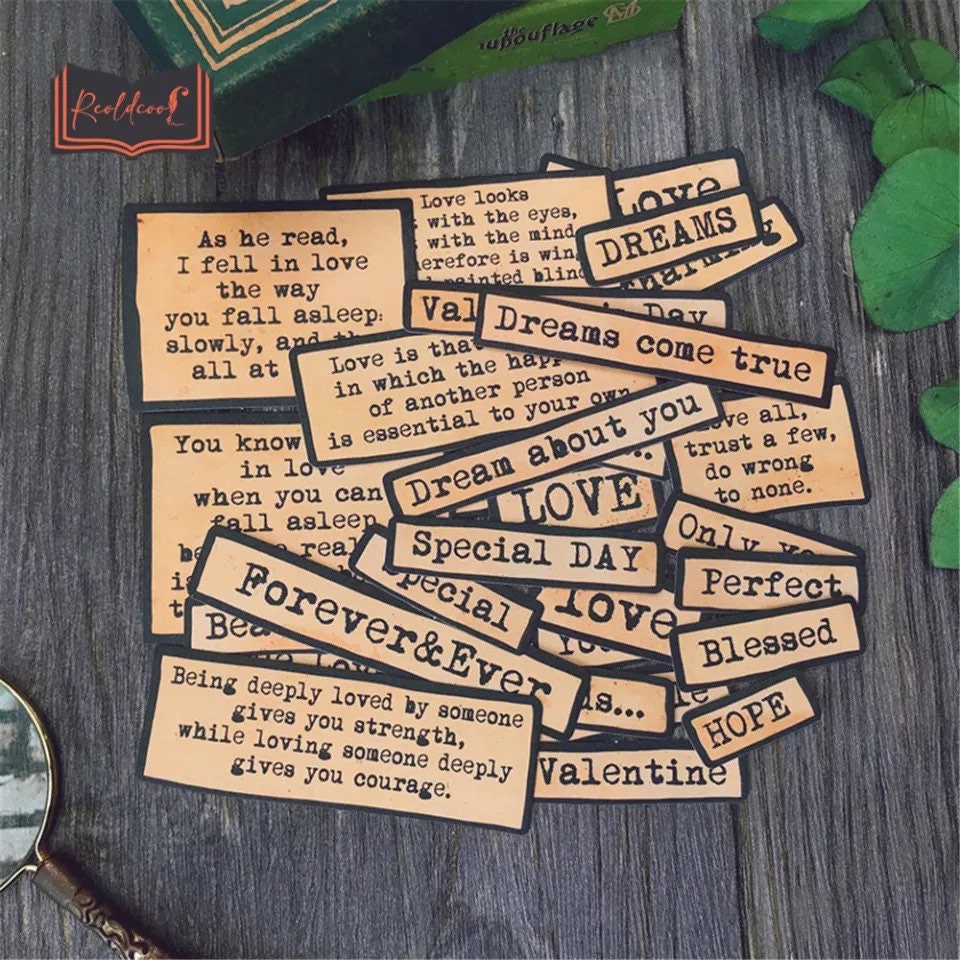 Rcoldcool
As he read,
I fell in love
the way
you fall asleep:
slowly, and
all at
Love looks
with the eyes,
with the mind
erefore is win
painted blin
Love
DREAMS
Val
Day
Dreams come true
Love is tha
in which the hap
of another person
is essential to your own
Dream about you
...
ve all,
trust a few,
do wrong
to none.
You know
in love
when you can
fall asleep
real
LOVE
Special DAY
Only
Perfect
Special
love
Blessed
Forever&Ever
Bea
is...
HOPE
Being deeply loved by someone
gives you strength,
while loving someone deeply
gives you courage.
Valentine